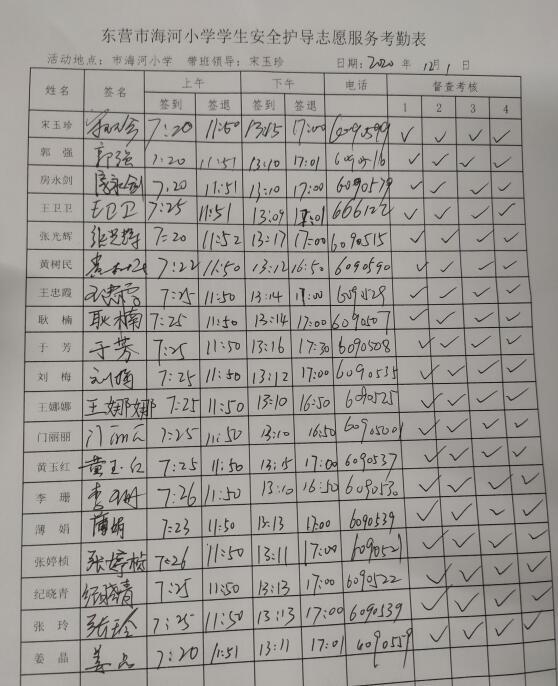 东营市海河小学学生安全护导志愿服务考勤表
活动地点：市海河小学 带班领导：宋玉珍 日期：2020年12月1日
姓名 签名 上午 下午 电话 督查考核
签到 签退 签到 签退 1 2 3 4
宋玉珍 7:20 11:50 13:15 17:00 6090599 ✓ ✓ ✓ ✓
郭强 郭强 7:20 11:51 13:10 17:01 6090516 ✓ ✓ ✓ ✓
房永剑 房永剑 7:20 11:51 13:10 17:00 6090579 ✓ ✓ ✓ ✓
王卫卫 王卫卫 7:25 11:51 13:09 17:01 ✓ ✓ ✓ ✓
张光辉 张光辉 7:20 11:52 13:17 17:00 6090515 ✓ ✓ ✓ ✓
黄树民 7:22 11:50 13:12 16:50 6090590 ✓ ✓ ✓ ✓
王忠霞 王忠霞 7:25 11:50 13:14 17:00 6090529 ✓ ✓ ✓ ✓
耿楠 耿楠 7:25 11:50 13:14 17:00 6090507 ✓ ✓ ✓ ✓
于芳 于芳 7:25 11:50 13:16 17:30 6090508 ✓ ✓ ✓ ✓
刘梅 刘梅 7:25 11:50 13:12 17:00 6090535 ✓ ✓ ✓ ✓
王娜娜 王娜娜 7:25 11:50 13:10 16:50 6090525 ✓ ✓ ✓ ✓
门丽丽 门丽丽 7:25 11:50 13:10 16:50 ✓ ✓ ✓ ✓
黄玉红 黄玉红 7:25 11:50 13:15 17:00 6090537 ✓ ✓ ✓ ✓
李珊 李珊 7:26 11:50 13:10 16:50 6090530 ✓ ✓ ✓ ✓
薄娟 薄娟 7:23 11:50 13:13 17:00 6090539 ✓ ✓ ✓ ✓
张婷桢 张婷桢 7:26 11:50 13:11 17:00 6090521 ✓ ✓ ✓ ✓
纪晓青 纪晓青 7:25 11:50 13:13 17:00 6090522 ✓ ✓ ✓ ✓
张玲 张玲 7:25 11:50 13:13 17:00 6090539 ✓ ✓ ✓ ✓
姜晶 姜晶 7:20 11:51 13:11 17:01 6090559 ✓ ✓ ✓ ✓